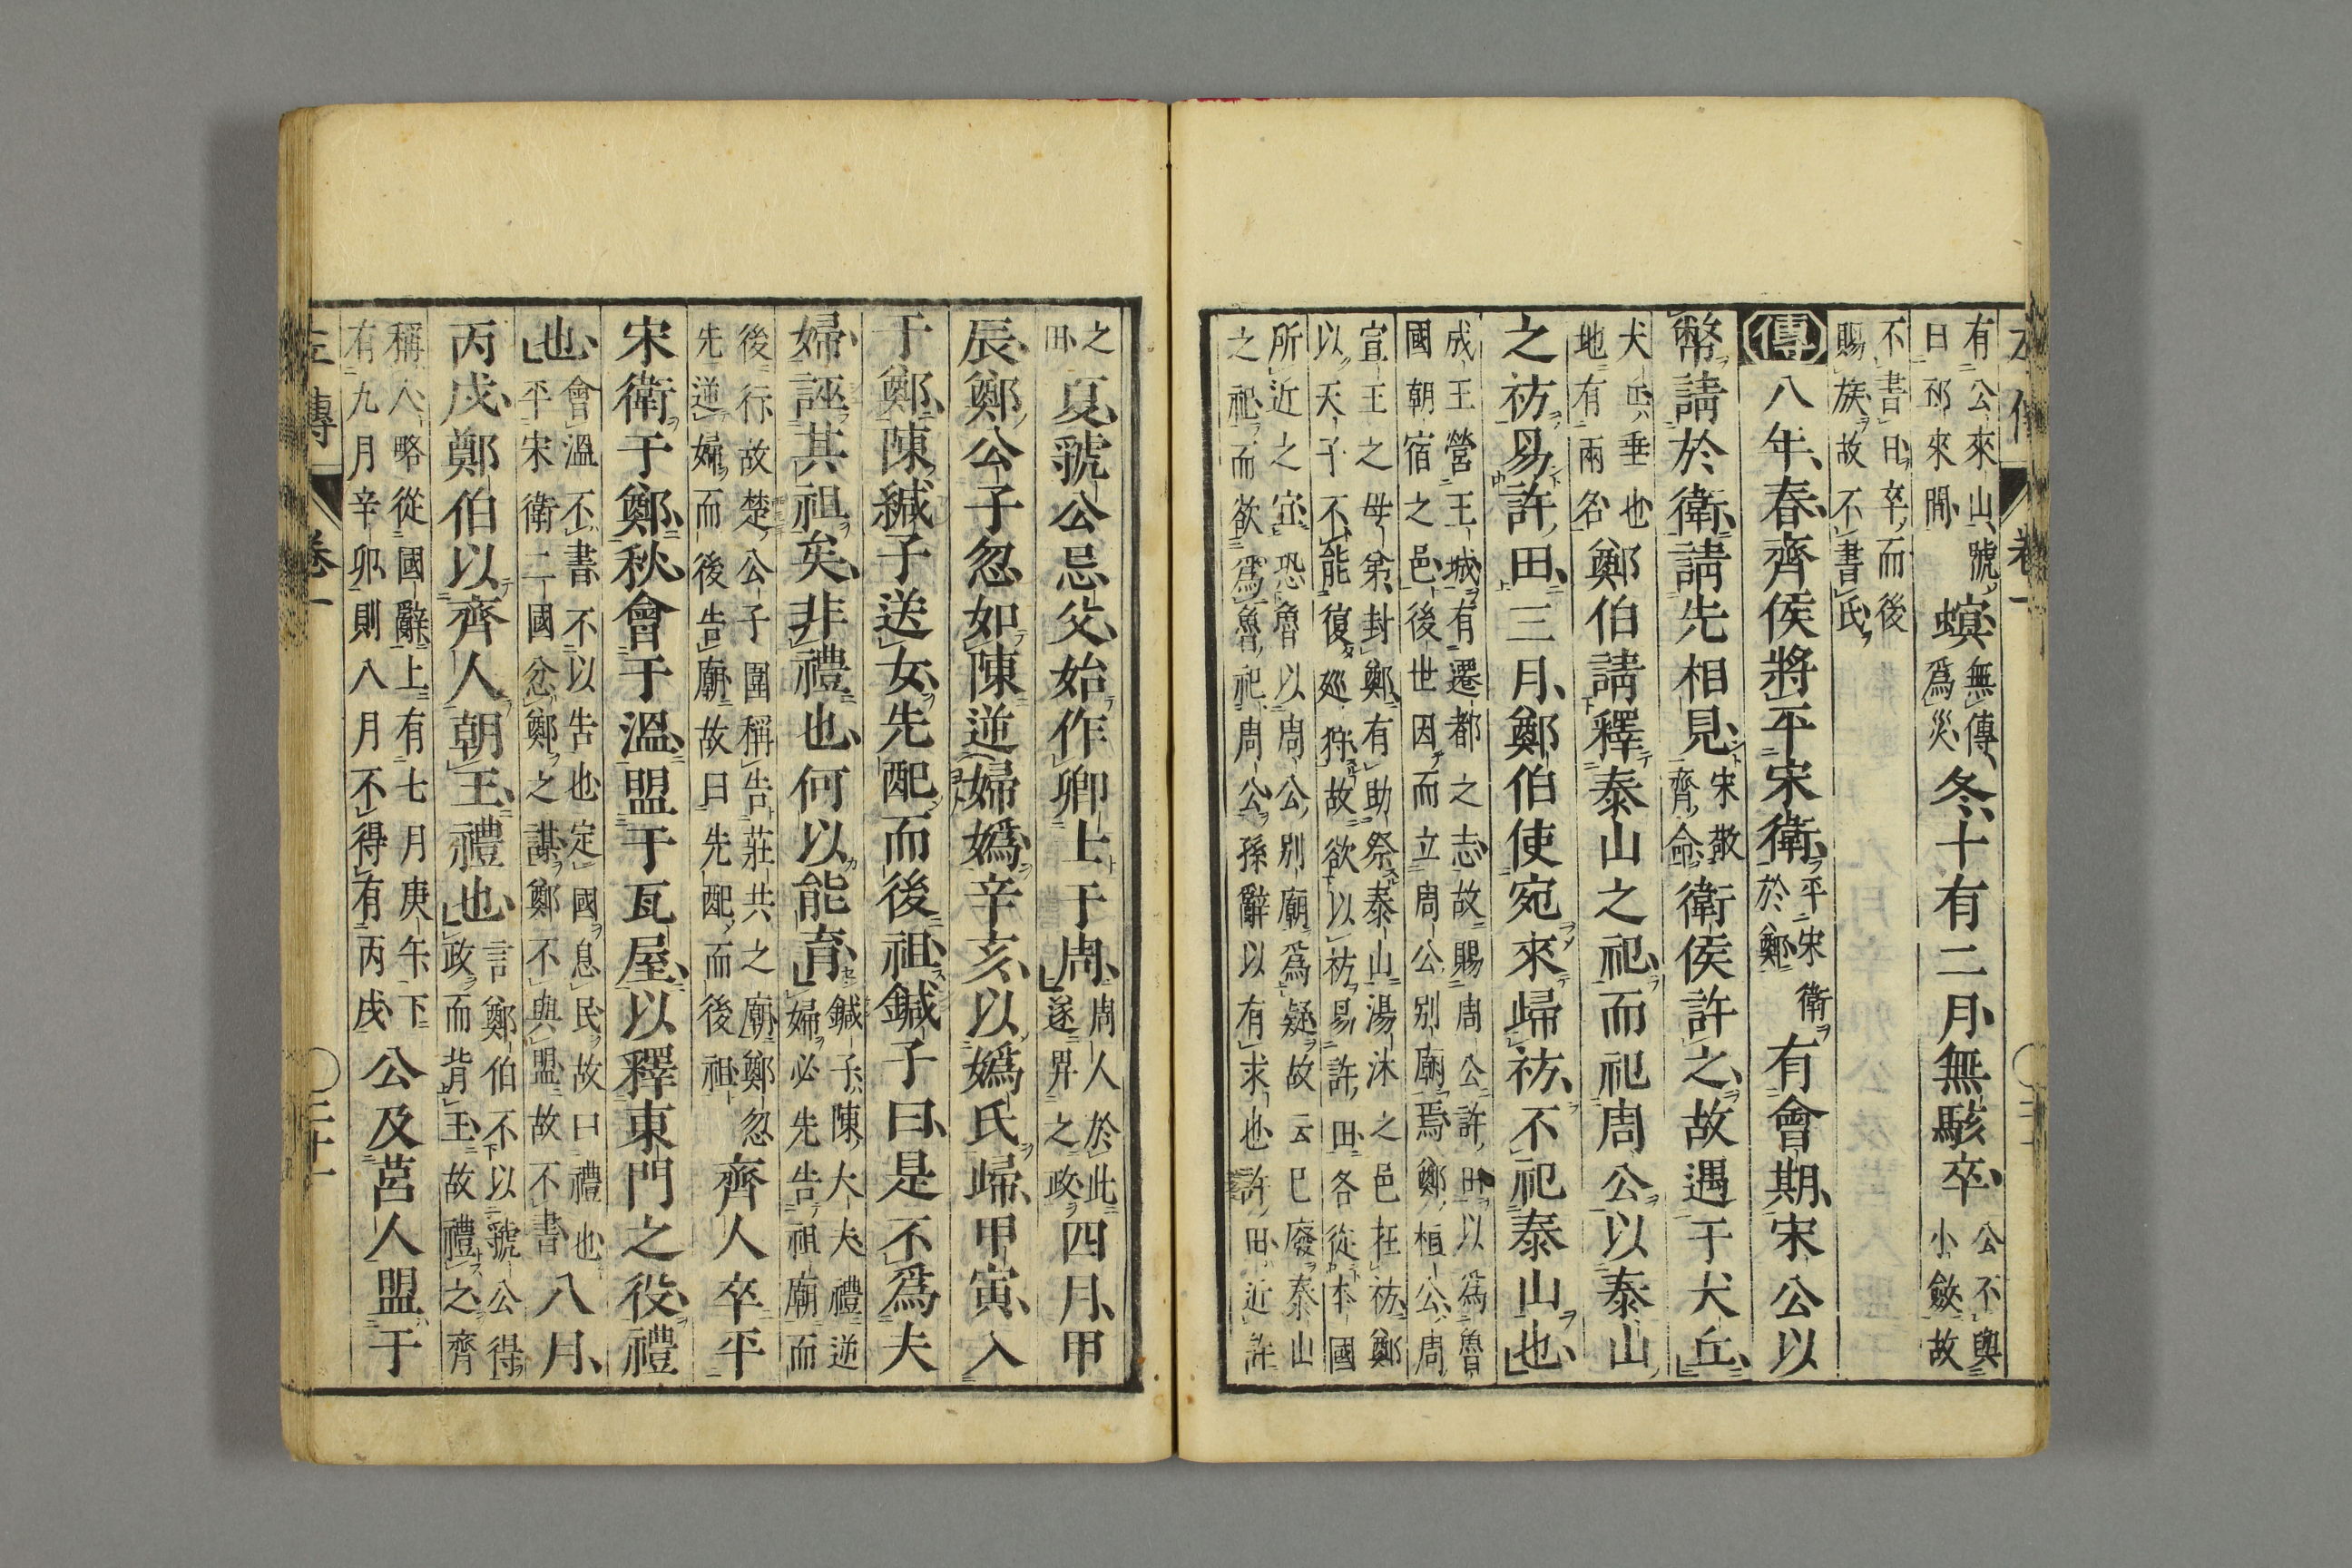 左傳 卷一
有公來山、號
曰邳來間
螟、
無傳、
爲災、
冬、十有二月、無駭卒、
公不與
小斂故
不書日卒、而後
賜族、故不書氏、
傳
八年、春、齊侯將平宋衛、
平宋衛
於鄭
有會期、宋公以
幣請於衛、請先相見、
宋敬
齊命
衛侯許之、故遇于犬丘、
犬丘、垂也
地有兩名
鄭伯請釋泰山之祀、而祀周公、以泰山
之祊易許田、三月、鄭伯使宛來歸祊、不祀泰山也、
成王營王城、有遷都之志、故賜周公許田、以爲魯
國朝宿之邑、後世因而立周公別廟焉、鄭桓公、周
宣王之母弟、封鄭、有助祭泰山湯沐之邑在祊、鄭
以天子不能復巡狩、故欲以祊易許田、各從本國
所近之宜、恐魯以周公別廟爲疑、故云已廢泰山
之祀、而欲爲魯祀周公、孫辭以有求也、許田、近許
之
田、
夏、虢公忌父始作卿士于周、
周人於此
遂畀之政
四月、甲
辰、鄭公子忽如陳逆婦嬀、辛亥、以嬀氏歸、甲寅、入
于鄭、陳鍼子送女、先配而後祖、鍼子曰、是不爲夫
婦、誣其祖矣、非禮也、何以能育、
鍼子、陳大夫、禮逆
婦必先告祖廟而
後行、故楚公子圍稱告莊共之廟、鄭忽
先逆婦、而後告廟、故曰先配而後祖、
齊人卒平
宋衛于鄭、秋、會于溫、盟于瓦屋、以釋東門之役、禮
也、
會溫不書、不以告也、定國息民、故曰禮也、
平宋衛二國忿鄭之謀、鄭不與盟、故不書
八月、
丙戌、鄭伯以齊人朝王、禮也、
言鄭伯不以虢公得
政而背王、故禮之、齊
稱人、略從國辭、上有七月庚午、下
有九月辛卯、則八月不得有丙戌
公及莒人盟于
左傳 卷一 三十一